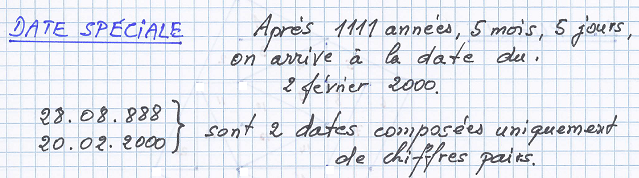 DATE SPÉCIALE Après 1111 années, 5 mois, 5 jours,
on arrive à la date du.
2 février 2000.
28.08.888
20.02.2000 } sont 2 dates composées uniquement
de chiffres pairs.